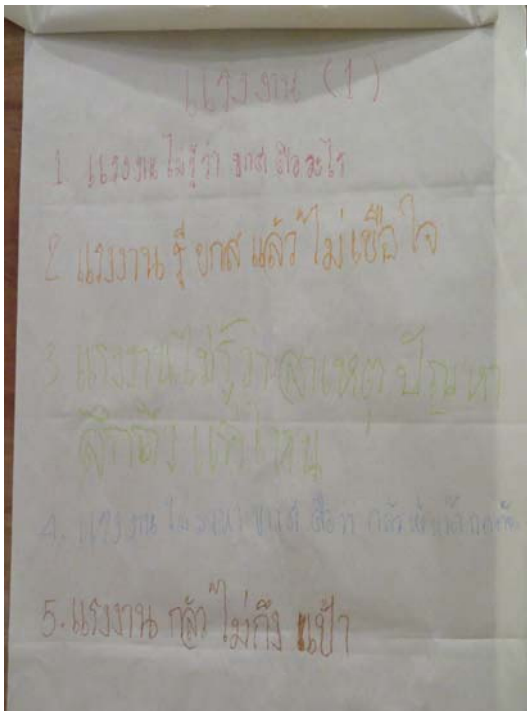 แรงงาน (1)
1. แรงงาน ไม่รู้ว่า ยกส คืออะไร
2. แรงงาน รู้ ยกส แล้ว ไม่เชื่อใจ
3. แรงงานไม่รู้ว่า สาเหตุ ปัญหา
ลึกถึง แค่ไหน
4. แรงงาน ไม่ ยกส กลัว
5. แรงงาน กลัว ไม่ถึง เป้า